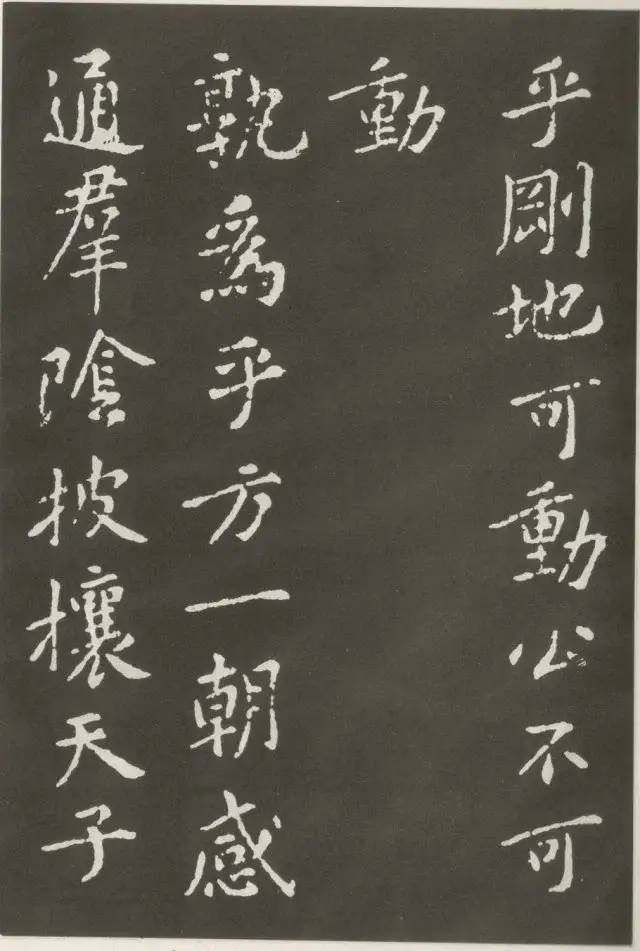 乎剛地可動公不可
動
孰為乎方一朝感
通羣陰披攘天子